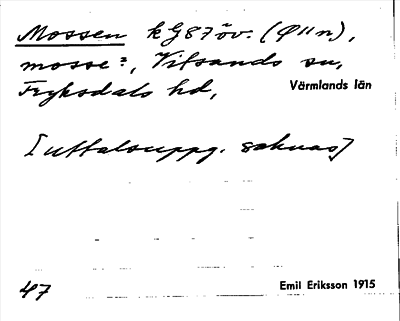 Mossen k G87 öv. (Ø11n),
mosse?, Vitsands sn,
Fryksdals hd, Värmlands län
[uttalsuppg. saknas]
47 Emil Eriksson 1915